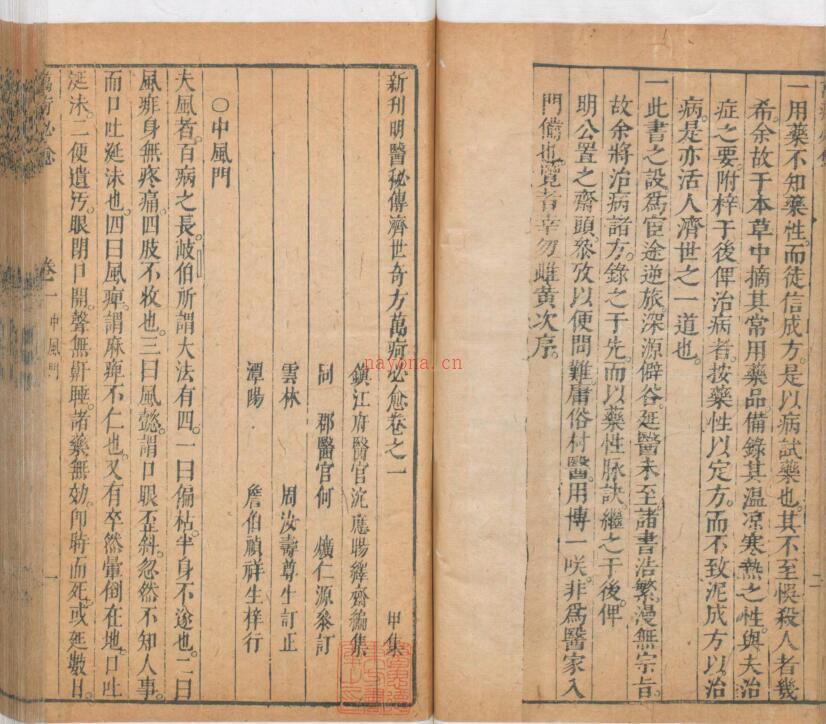 一用藥不知藥性。而徒信成方。是以病試藥也。其不至悞殺人者幾
希。余故于本草中摘其常用藥品備錄其温凉寒熱之性與夫治
症之要附梓于後俾治病者。按藥性以定方。而不致泥成方以治
病。是亦活人濟世之一道也。
一此書之設爲宦途逆旅。深源僻谷。延醫未至。諸書浩繁。漫無宗旨。
故余將治病諸方。錄之于先。而以藥性脉訣。繼之于後。俾
明公置之齋頭。叅攷以便問難。庸俗村醫。用博一咲。非爲醫家入
門備也。覽者幸勿雌黃次序。
二
新刊明醫秘傳濟世奇方萬病必愈卷之一
甲集
鎮江府醫官沈應暘繹齋編集
同 郡醫官何 爌仁源叅訂
雲林 周汝壽尊生訂正
潭陽 詹伯禎祥生梓行
○中風門
夫風者。百病之長。歧伯所謂大法有四。一曰偏枯。半身不遂也。二曰
風痱。身無疼痛。四肢不收也。三曰風懿。謂口眼歪斜。忽然不知人事。
而口吐涎沫也。四曰風痺。謂麻痺不仁也。又有卒然暈倒在地。口吐
涎沫。二便遺汚。眼閉口開。聲無鼾睡。諸藥無効。即時而死。或延數日。
萬病必愈 卷一 中風門 一
nayona.cn